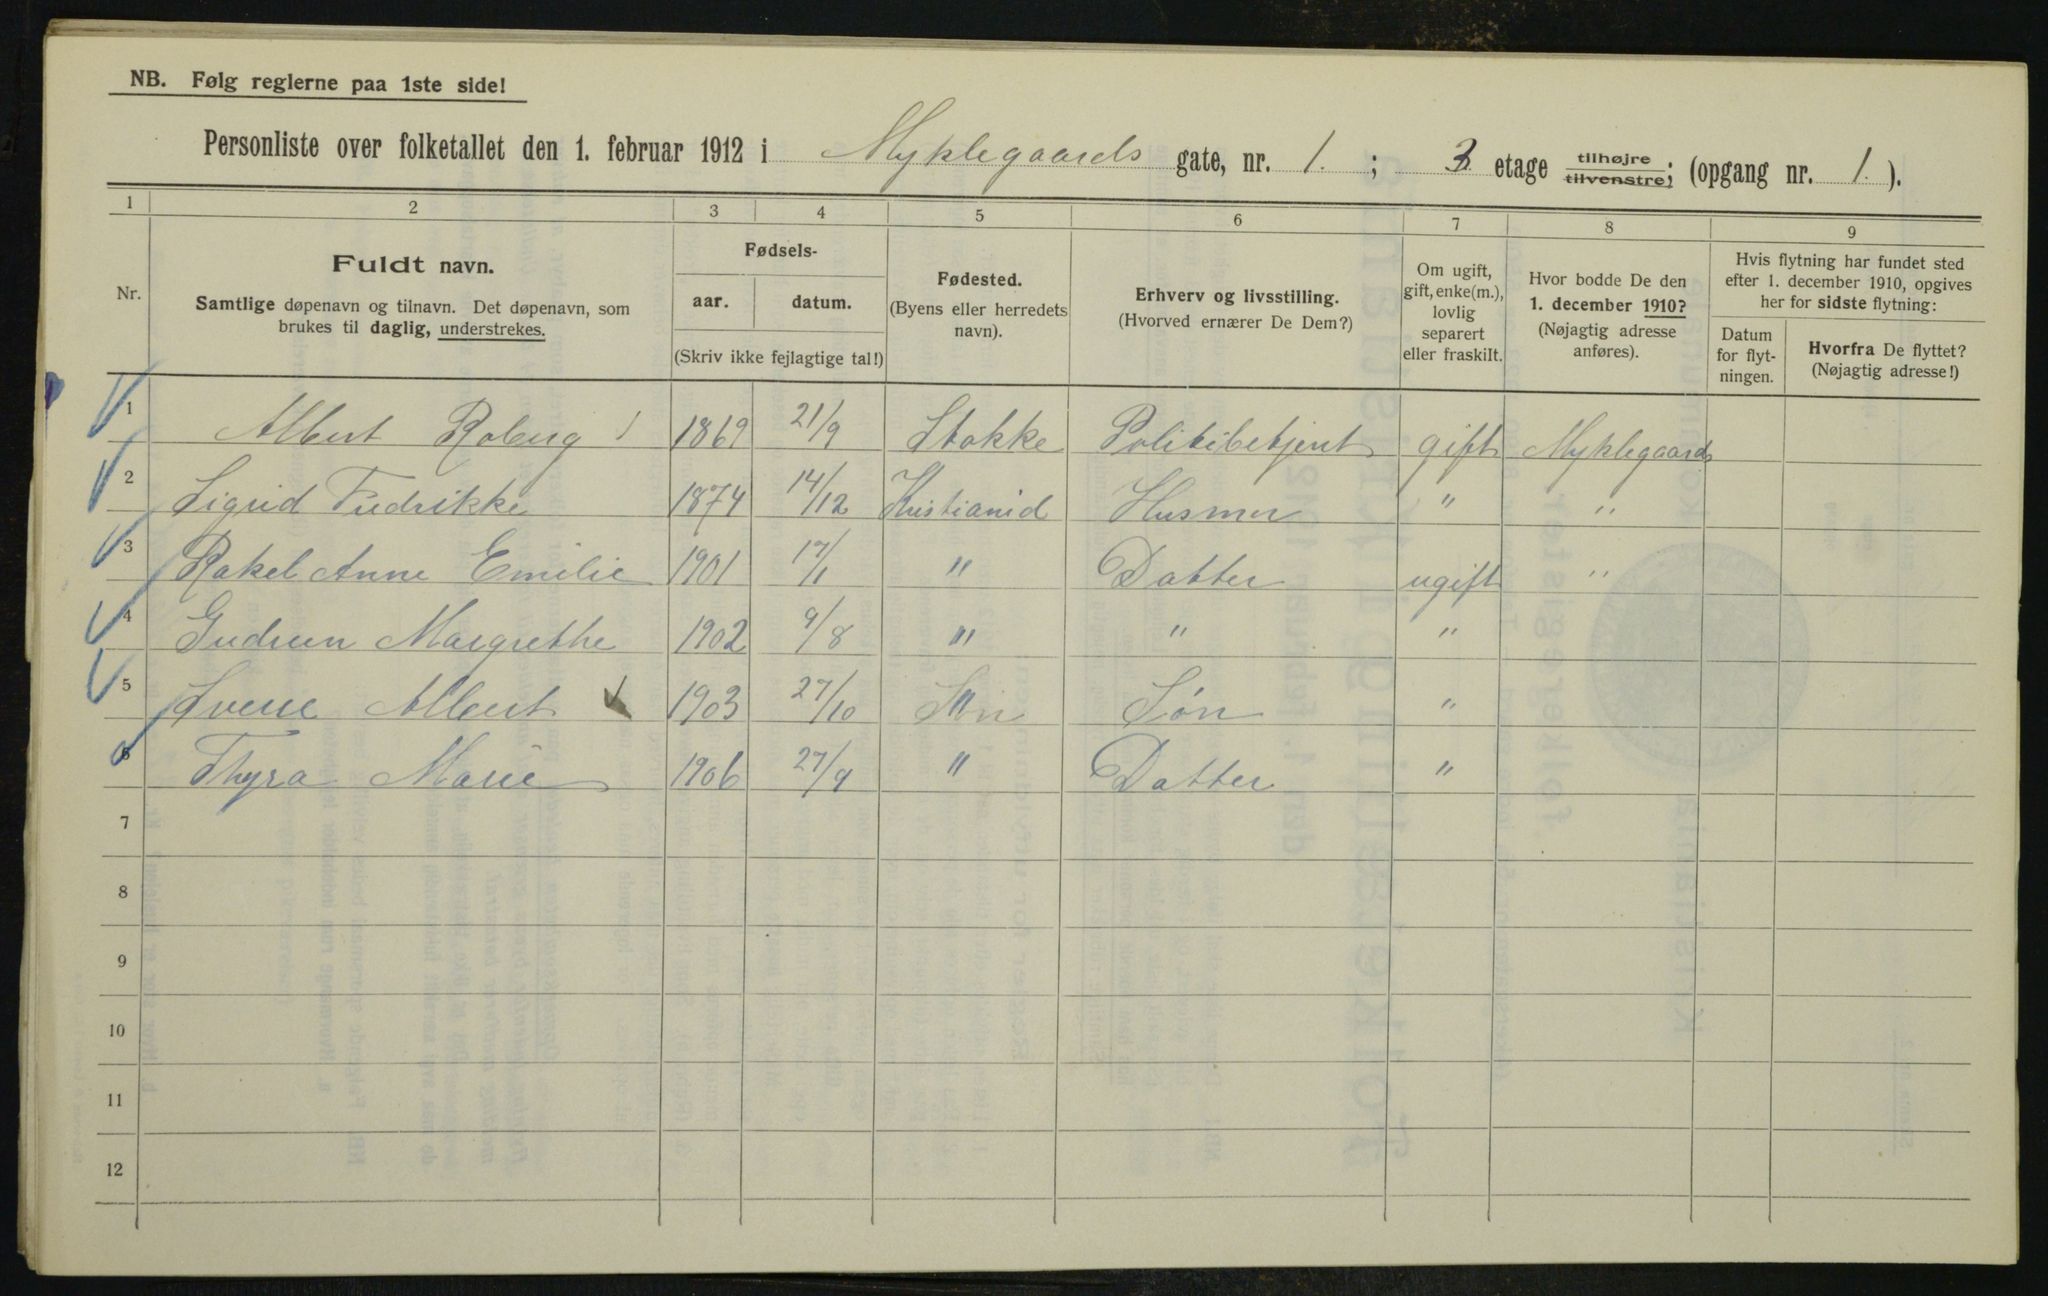 NB. Følg reglerne paa 1ste side!
Personliste over folketallet den 1. februar 1912 i Myklegaards gate, nr. 1. ; 3 etage tilhøjre tilvenstre; (opgang nr. 1.).
1 2 3 4 5 6 7 8 9
Nr.
Fuldt navn.
Samtlige døpenavn og tilnavn. Det døpenavn, som
brukes til daglig, understrekes.
Fødsels-
aar. datum.
(Skriv ikke fejlagtige tal!)
Fødested.
(Byens eller herredets
navn).
Erhverv og livsstilling.
(Hvorved ernærer De Dem?)
Om ugift,
gift, enke(m.),
lovlig
separert
eller fraskilt.
Hvor bodde De den
1. december 1910?
(Nøjagtig adresse
anføres).
Hvis flytning har fundet sted
efter 1. december 1910, opgives
her for sidste flytning:
Datum
for flyt-
ningen.
Hvorfra De flyttet?
(Nøjagtig adresse!)
1 Albert Roberg 1869 21/9 Stokke Politibetjent gift Myklegaards
2 Sigrid Fredrikke 1874 14/12 Kristiania Husmor " "
3 Rakel Anne Emilie 1901 17/1 " Datter ugift "
4 Gudrun Margrethe 1902 9/8 " " "
5 Sverre Albert 1903 27/10 " Søn "
6 Thyra Marie 1906 27/9 " Datter "
7
8
9
10
11
12